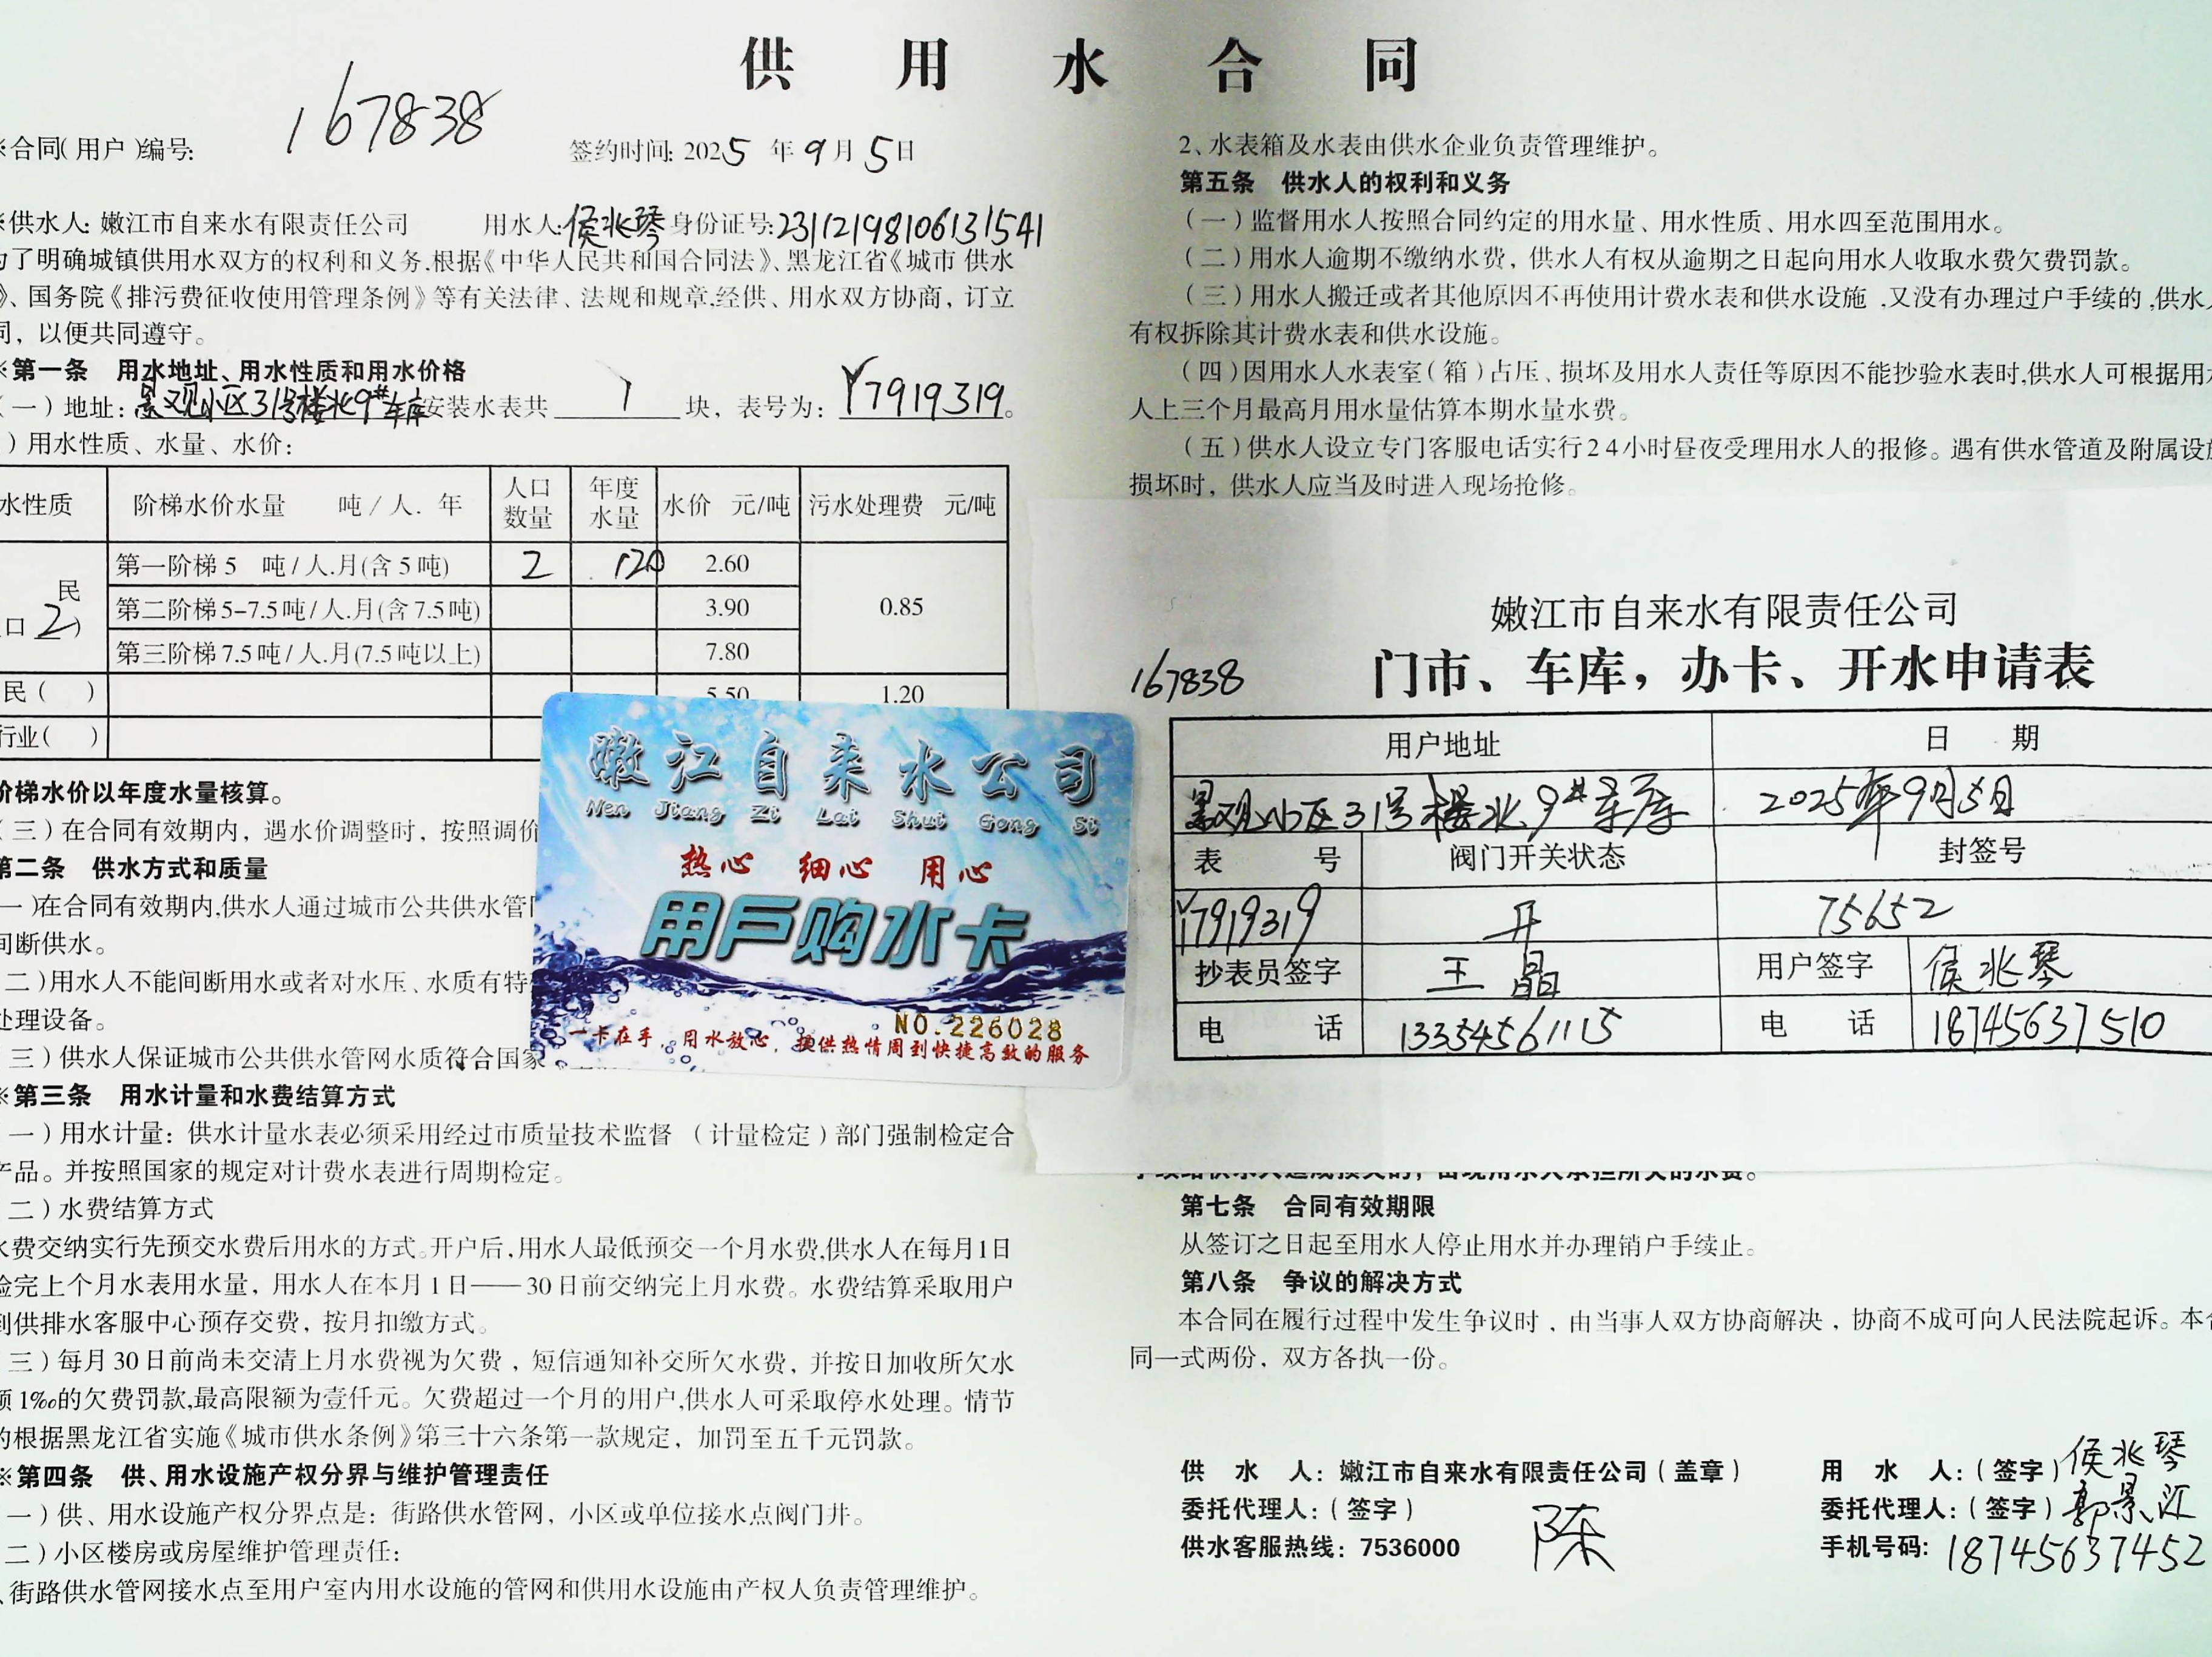 供用水合同
※合同(用户)编号: 167838
签约时间: 2025年9月5日
※供水人: 嫩江市自来水有限责任公司 用水人: 侯兆琴 身份证号: 231121198106131541
为了明确城镇供用水双方的权利和义务,根据《中华人民共和国合同法》、黑龙江省《城市供水
》、国务院《排污费征收使用管理条例》等有关法律、法规和规章,经供、用水双方协商，订立
同，以便共同遵守。
※第一条 用水地址、用水性质和用水价格
(一)地址: 景观小区31号楼北9#车库 安装水表共 1 块，表号为: Y7919319。
)用水性质、水量、水价:
水性质 阶梯水价水量 吨/人.年 人口数量 年度水量 水价 元/吨 污水处理费 元/吨
民
口 2)
第一阶梯5 吨/人.月(含5吨) 2 120 2.60
第二阶梯5-7.5吨/人.月(含7.5吨) 3.90 0.85
第三阶梯7.5吨/人.月(7.5吨以上) 7.80
民( ) 5.50 1.20
行业( )
阶梯水价以年度水量核算。
(三)在合同有效期内，遇水价调整时，按照调价
第二条 供水方式和质量
一)在合同有效期内,供水人通过城市公共供水管
间断供水。
二)用水人不能间断用水或者对水压、水质有特
处理设备。
三)供水人保证城市公共供水管网水质符合国家
※第三条 用水计量和水费结算方式
一)用水计量: 供水计量水表必须采用经过市质量技术监督(计量检定)部门强制检定合
产品。并按照国家的规定对计费水表进行周期检定。
二)水费结算方式
水费交纳实行先预交水费后用水的方式。开户后,用水人最低预交一个月水费,供水人在每月1日
验完上个月水表用水量，用水人在本月1日——30日前交纳完上月水费。水费结算采取用户
到供排水客服中心预存交费，按月扣缴方式。
三)每月30日前尚未交清上月水费视为欠费，短信通知补交所欠水费，并按日加收所欠水
额1‰的欠费罚款,最高限额为壹仟元。欠费超过一个月的用户,供水人可采取停水处理。情节
的根据黑龙江省实施《城市供水条例》第三十六条第一款规定，加罚至五千元罚款。
※第四条 供、用水设施产权分界与维护管理责任
一)供、用水设施产权分界点是: 街路供水管网，小区或单位接水点阀门井。
二)小区楼房或房屋维护管理责任:
、街路供水管网接水点至用户室内用水设施的管网和供用水设施由产权人负责管理维护。
2、水表箱及水表由供水企业负责管理维护。
第五条 供水人的权利和义务
(一)监督用水人按照合同约定的用水量、用水性质、用水四至范围用水。
(二)用水人逾期不缴纳水费，供水人有权从逾期之日起向用水人收取水费欠费罚款。
(三)用水人搬迁或者其他原因不再使用计费水表和供水设施,又没有办理过户手续的,供水人
有权拆除其计费水表和供水设施。
(四)因用水人水表室(箱)占压、损坏及用水人责任等原因不能抄验水表时,供水人可根据用水
人上三个月最高月用水量估算本期水量水费。
(五)供水人设立专门客服电话实行24小时昼夜受理用水人的报修。遇有供水管道及附属设施
损坏时，供水人应当及时进入现场抢修。
嫩江市自来水有限责任公司
167838 门市、车库，办卡、开水申请表
用户地址 日 期
景观小区31号楼北9#车库 2025年9月5日
表 号 阀门开关状态 封签号
Y7919319 开 75652
抄表员签字 王晶 用户签字 侯兆琴
电 话 13354561115 电 话 18745637510
嫩江自来水公司
Nen Jiang Zi Lai Shui Gong Si
热心 细心 用心
用户购水卡
NO.226028
一卡在手，用水放心，提供热情周到快捷高效的服务
第七条 合同有效期限
从签订之日起至用水人停止用水并办理销户手续止。
第八条 争议的解决方式
本合同在履行过程中发生争议时，由当事人双方协商解决，协商不成可向人民法院起诉。本合
同一式两份，双方各执一份。
供 水 人: 嫩江市自来水有限责任公司(盖章) 用 水 人:(签字) 侯兆琴
委托代理人:(签字) 陈 委托代理人:(签字) 郭景江
供水客服热线: 7536000 手机号码: 18745637452